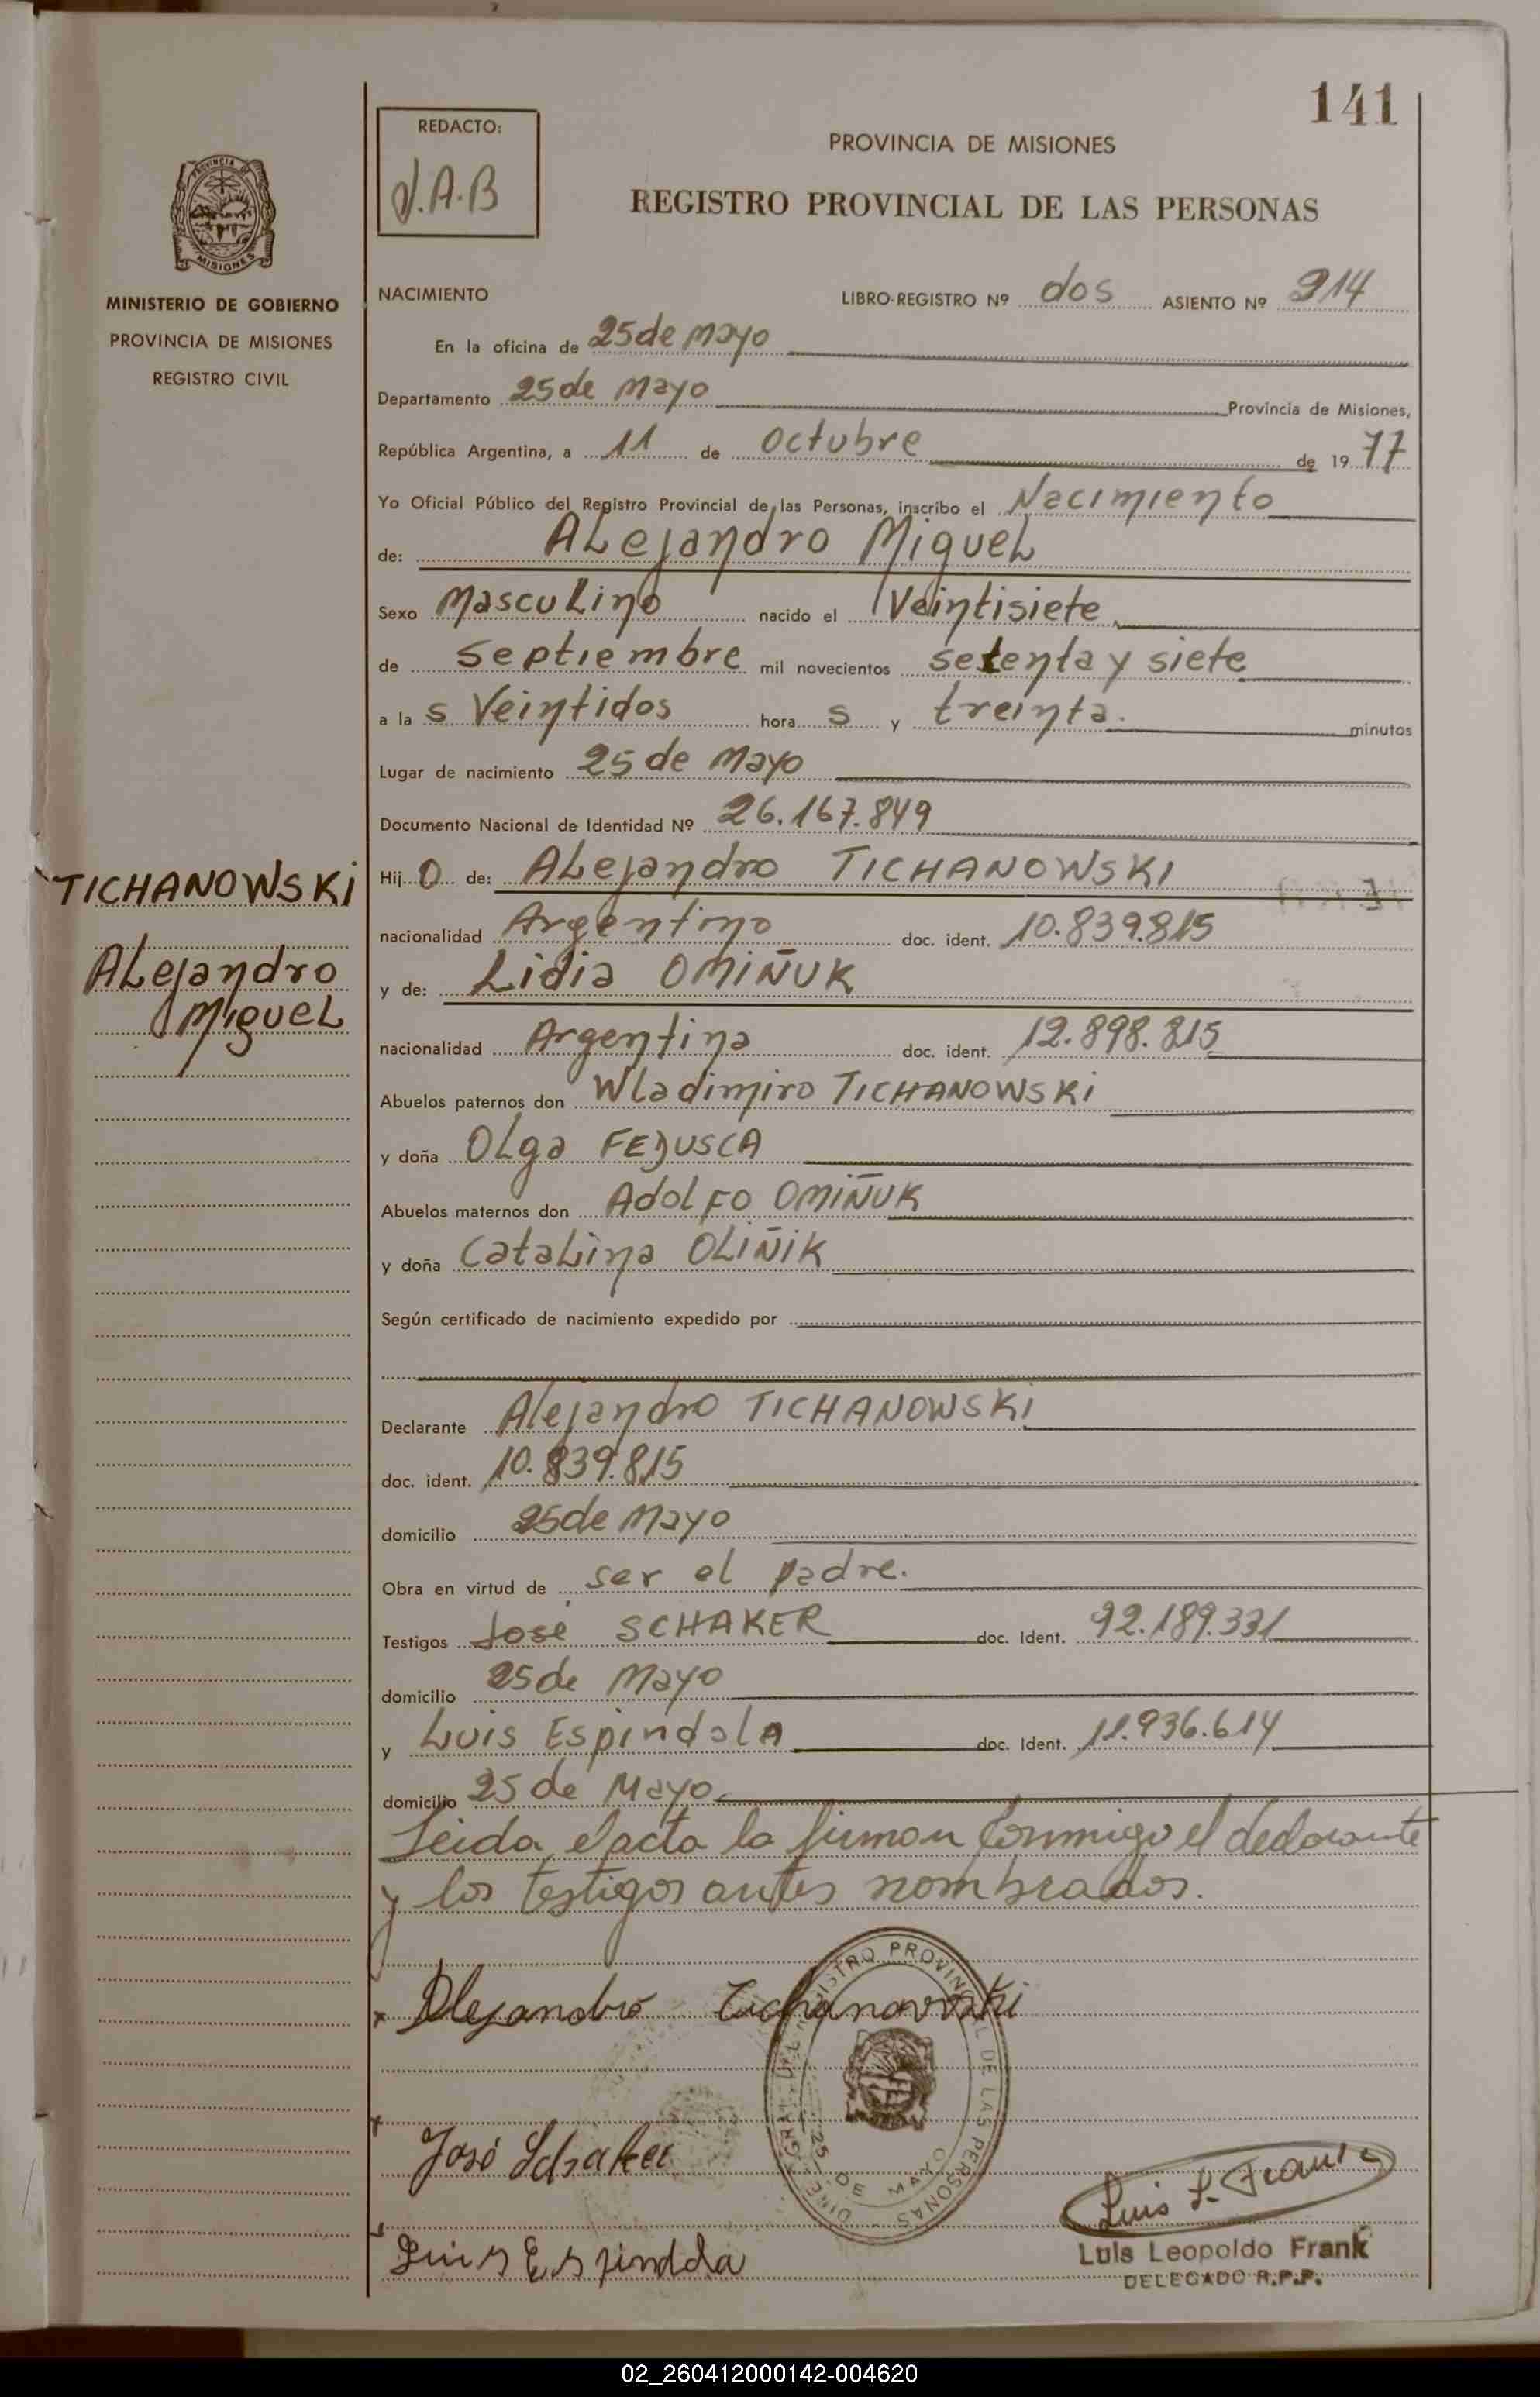 141
REDACTO:
J.A.B
PROVINCIA DE MISIONES
REGISTRO PROVINCIAL DE LAS PERSONAS
PROVINCIA DE
MISIONES
MINISTERIO DE GOBIERNO
PROVINCIA DE MISIONES
REGISTRO CIVIL
NACIMIENTO LIBRO-REGISTRO Nº dos ASIENTO Nº 214
En la oficina de 25 de Mayo
Departamento 25 de Mayo Provincia de Misiones,
República Argentina, a 11 de Octubre de 1977
Yo Oficial Público del Registro Provincial de las Personas, inscribo el Nacimiento
de: ALejandro MigueL
Sexo MascuLino nacido el Veintisiete
de Septiembre mil novecientos setenta y siete
a la s Veintidos hora s y treinta. minutos
Lugar de nacimiento 25 de Mayo
Documento Nacional de Identidad Nº 26.167.849
TICHANOWSKi
ALejandro
MigueL
Hij O de: ALejandro TICHANOWSKI
nacionalidad Argentino doc. ident. 10.839.815
y de: Lidia OMIÑUK
nacionalidad Argentina doc. ident. 12.898.215
Abuelos paternos don WLadimiro TICHANOWSKi
y doña OLga FEDUSCA
Abuelos maternos don AdoLFO OMIÑUK
y doña CataLina OLIÑIK
Según certificado de nacimiento expedido por
Declarante Alejandro TICHANOWSKi
doc. ident. 10.839.815
domicilio 25 de Mayo
Obra en virtud de ser el padre.
Testigos José SCHAKER doc. Ident. 92.189.331
domicilio 25 de Mayo
y Luis EspindoLA doc. Ident. 11.936.614
domicilio 25 de Mayo.
Leida el acta la firman conmigo el declarante
y los testigos antes nombrados.
x Alejandro Tichanowski
DIREC. GRAL. DEL REGISTRO PROVINCIAL DE LAS PERSONAS
25 DE MAYO
x
José Schaker
Luis L. Frank
Luis Leopoldo Frank
DELEGADO R.P.P.
Luis Espindola
02_260412000142-004620